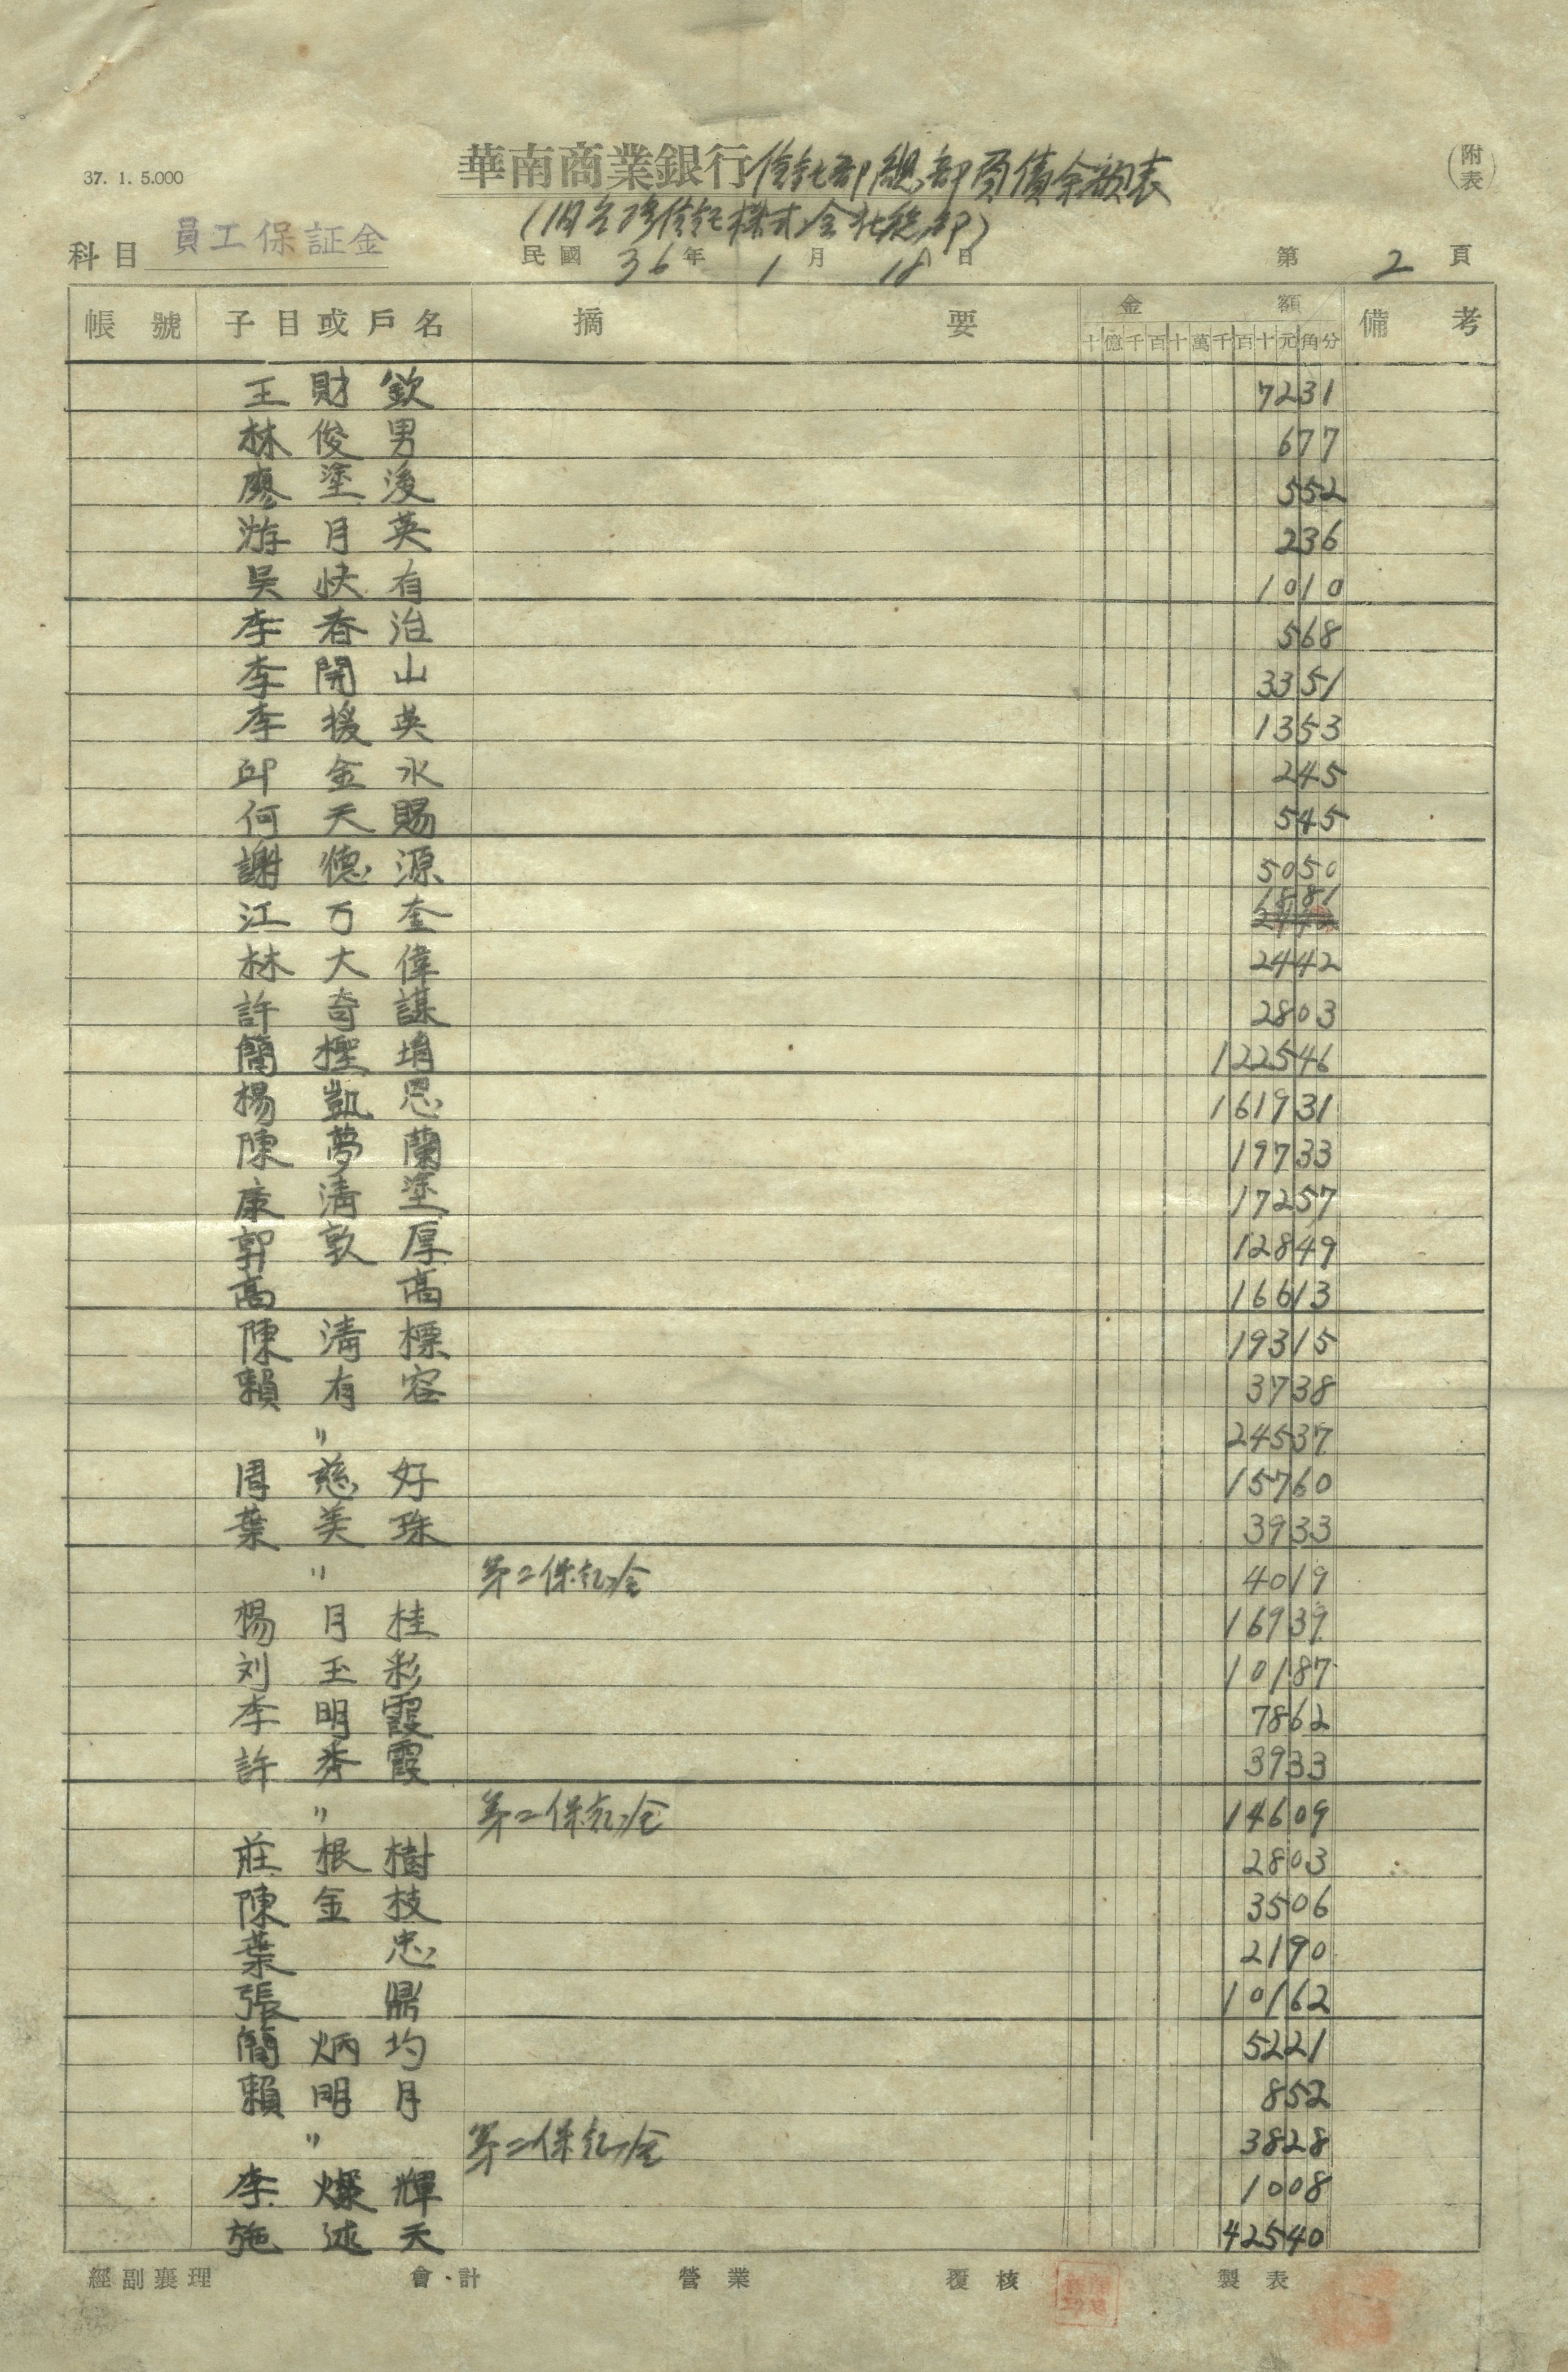 37. 1. 5.000
華南商業銀行信託部總部負債余額表
(旧台湾信託株式会社總部)
(附表)
科目 員工保証金
民國 36 年 1 月 18 日
第 2 頁
帳號 子目或戶名 摘要 金額 備考
十億千百十萬千百十元角分
王財欽 7231
林俊男 677
廖塗後 552
游月英 236
吳快有 1010
李春治 568
李開山 3351
李援英 1353
邱金永 245
何天賜 545
謝德源 5050
江万奎 1881
林大偉 2442
許奇謀 2803
簡堉 122546
楊凱恩 161931
陳夢蘭 19733
康清塗 17257
郭敦厚 12849
高高 16613
陳清標 19315
賴有容 3738
〃 24537
周慈好 15760
葉美珠 3933
〃 第二保証金 4019
楊月桂 16939
刘玉彩 10187
李明霞 7862
許秀霞 3933
〃 第二保証金 14609
莊根樹 2803
陳金枝 3506
葉忠 2190
張鼎 10162
簡炳均 5221
賴明月 852
〃 第二保証金 3828
李燦輝 1008
施述天 42540
經副襄理 會計 營業 覆核 製表